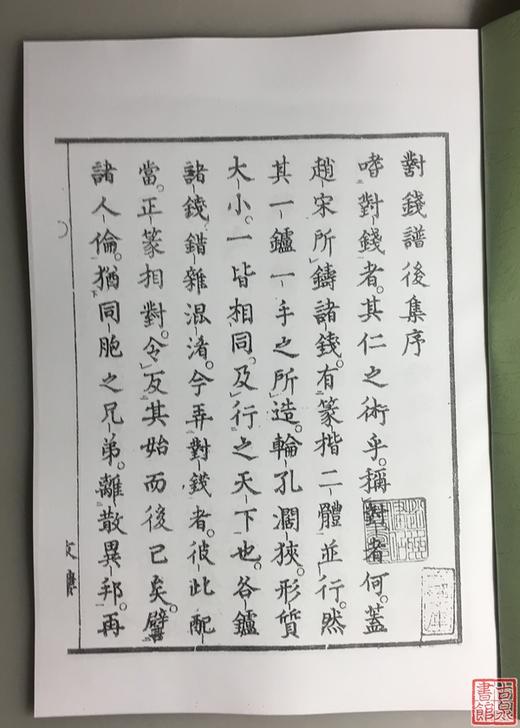 對錢譜後集序
嗜對錢者。其仁之術乎。稱對者何。蓋
趙宋所鑄諸錢。有篆楷二體並行。然
其一鑪一手之所造。輪孔濶狹。形質
大小。一皆相同。及行之天下也。各鑪
諸錢。錯雜混淆。今弄對錢者。彼此配
當。正篆相對。令反其始而後已矣。譬
諸人倫。猶同胞之兄弟。離散異邦。再
古泉
書館